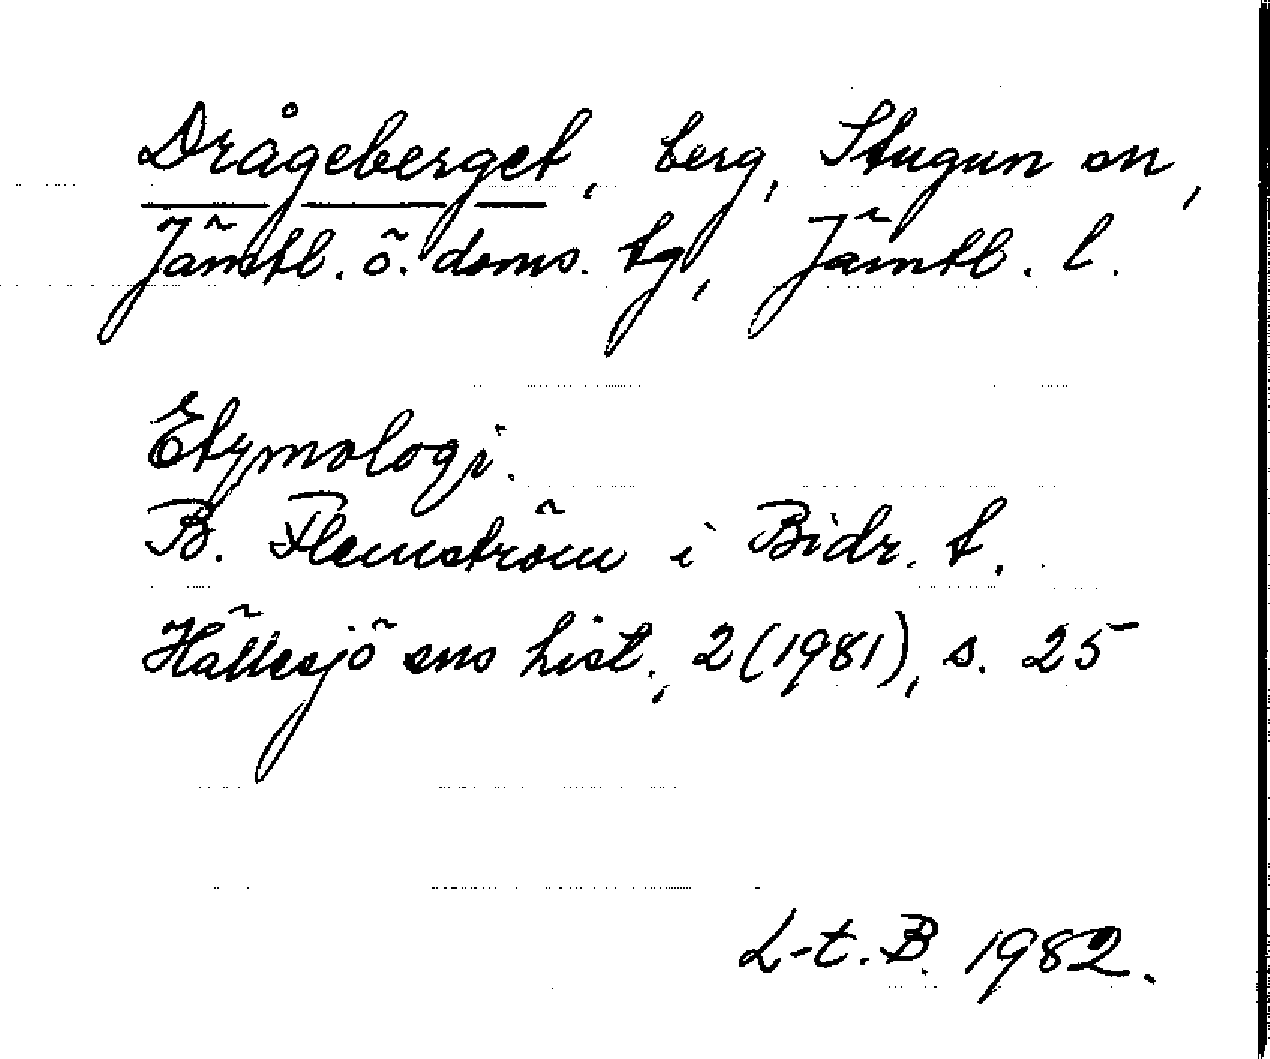 Drågeberget, berg, Stugun sn,
Jämtl. ö. doms. tg, Jämtl. l.
Etymologi.
B. Flemström i Bidr. t.
Hällesjö sns hist., 2 (1981), s. 25
L-t. B. 1982.